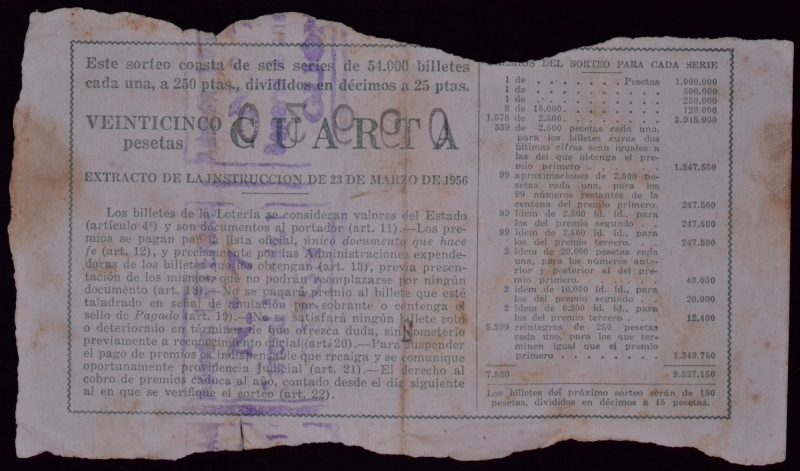 Este sorteo consta de seis series de 54.000 billetes
cada una, a 250 ptas., divididos en décimos a 25 ptas.
VEINTICINCO
pesetas
CUARTA
EXTRACTO DE LA INSTRUCCION DE 23 DE MARZO DE 1956
Los billetes de la Lotería se consideran valores del Estado
(artículo 4º) y son documentos al portador (art. 11).—Los pre-
mios se pagan por la lista oficial, único documento que hace
fe (art. 12), y precisamente por las Administraciones expende-
doras de los billetes que los obtengan (art. 13), previa presen-
tación de los mismos, que no podrán reemplazarse por ningún
documento (art. 18).—No se pagará premio al billete que esté
taladrado en señal de anulación por sobrante o contenga el
sello de Pagado (art. 19).—No se satisfará ningún billete roto
o deteriorado en términos de que ofrezca duda, sin someterlo
previamente a reconocimiento oficial (art. 20).—Para suspender
el pago de premios es indispensable que recaiga y se comunique
oportunamente providencia judicial (art. 21).—El derecho al
cobro de premios caduca al año, contado desde el día siguiente
al en que se verifique el sorteo (art. 22).
PREMIOS DEL SORTEO PARA CADA SERIE
1 de . . . . . . . Pesetas 1.000.000
1 de . . . . . . . 500.000
1 de . . . . . . . 250.000
8 de 15.000. . . . . . . 120.000
1.578 de 2.500. . . . . . . 3.945.000
539 de 2.500 pesetas cada uno,
para los billetes cuyas dos
últimas cifras sean iguales a
las del que obtenga el pre-
mio primero . . . . . 1.347.500
99 aproximaciones de 2.500 pe-
setas cada una, para los
99 números restantes de la
centena del premio primero. 247.500
99 ídem de 2.500 íd. íd., para
los del premio segundo . . . 247.500
99 ídem de 2.500 íd. íd., para
los del premio tercero. . . 247.500
2 ídem de 20.000 pesetas cada
una, para los números ante-
rior y posterior al del pre-
mio primero. . . . . . 40.000
2 ídem de 10.000 íd. íd., para
los del premio segundo . . 20.000
2 ídem de 6.200 íd. íd., para
los del premio tercero . . . 12.400
5.399 reintegros de 250 pesetas
cada uno, para los que ter-
minen igual que el premio
primero . . . . . . . 1.349.750
7.830 9.327.150
Los billetes del próximo sorteo serán de 150
pesetas, divididos en décimos a 15 pesetas.